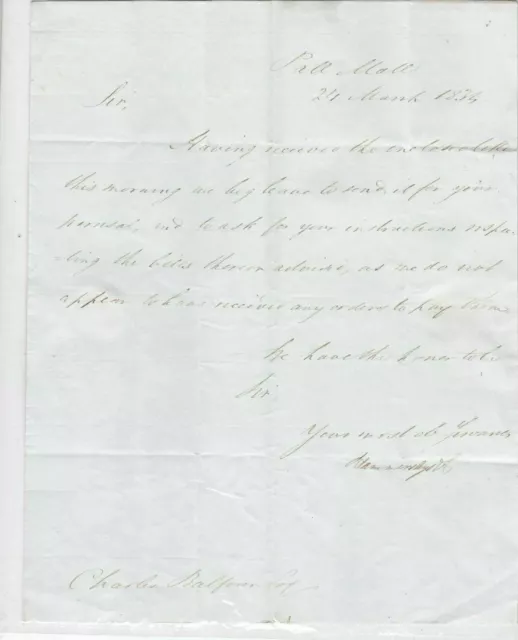 Pall Mall
24 March 1834
Sir,
Having received the enclosed letter
this morning we beg leave to send it for your
perusal, and to ask for your instructions respec
ting the bills therein advised, as we do not
appear to have received any orders to pay them
We have the honor to be
Sir
Your most ob Servants
Charles Balfour Esq